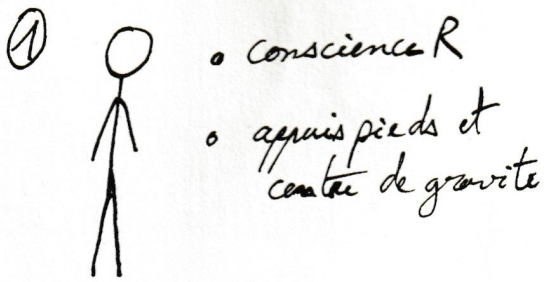 1
• conscience R
• appuis pieds et
centre de gravite